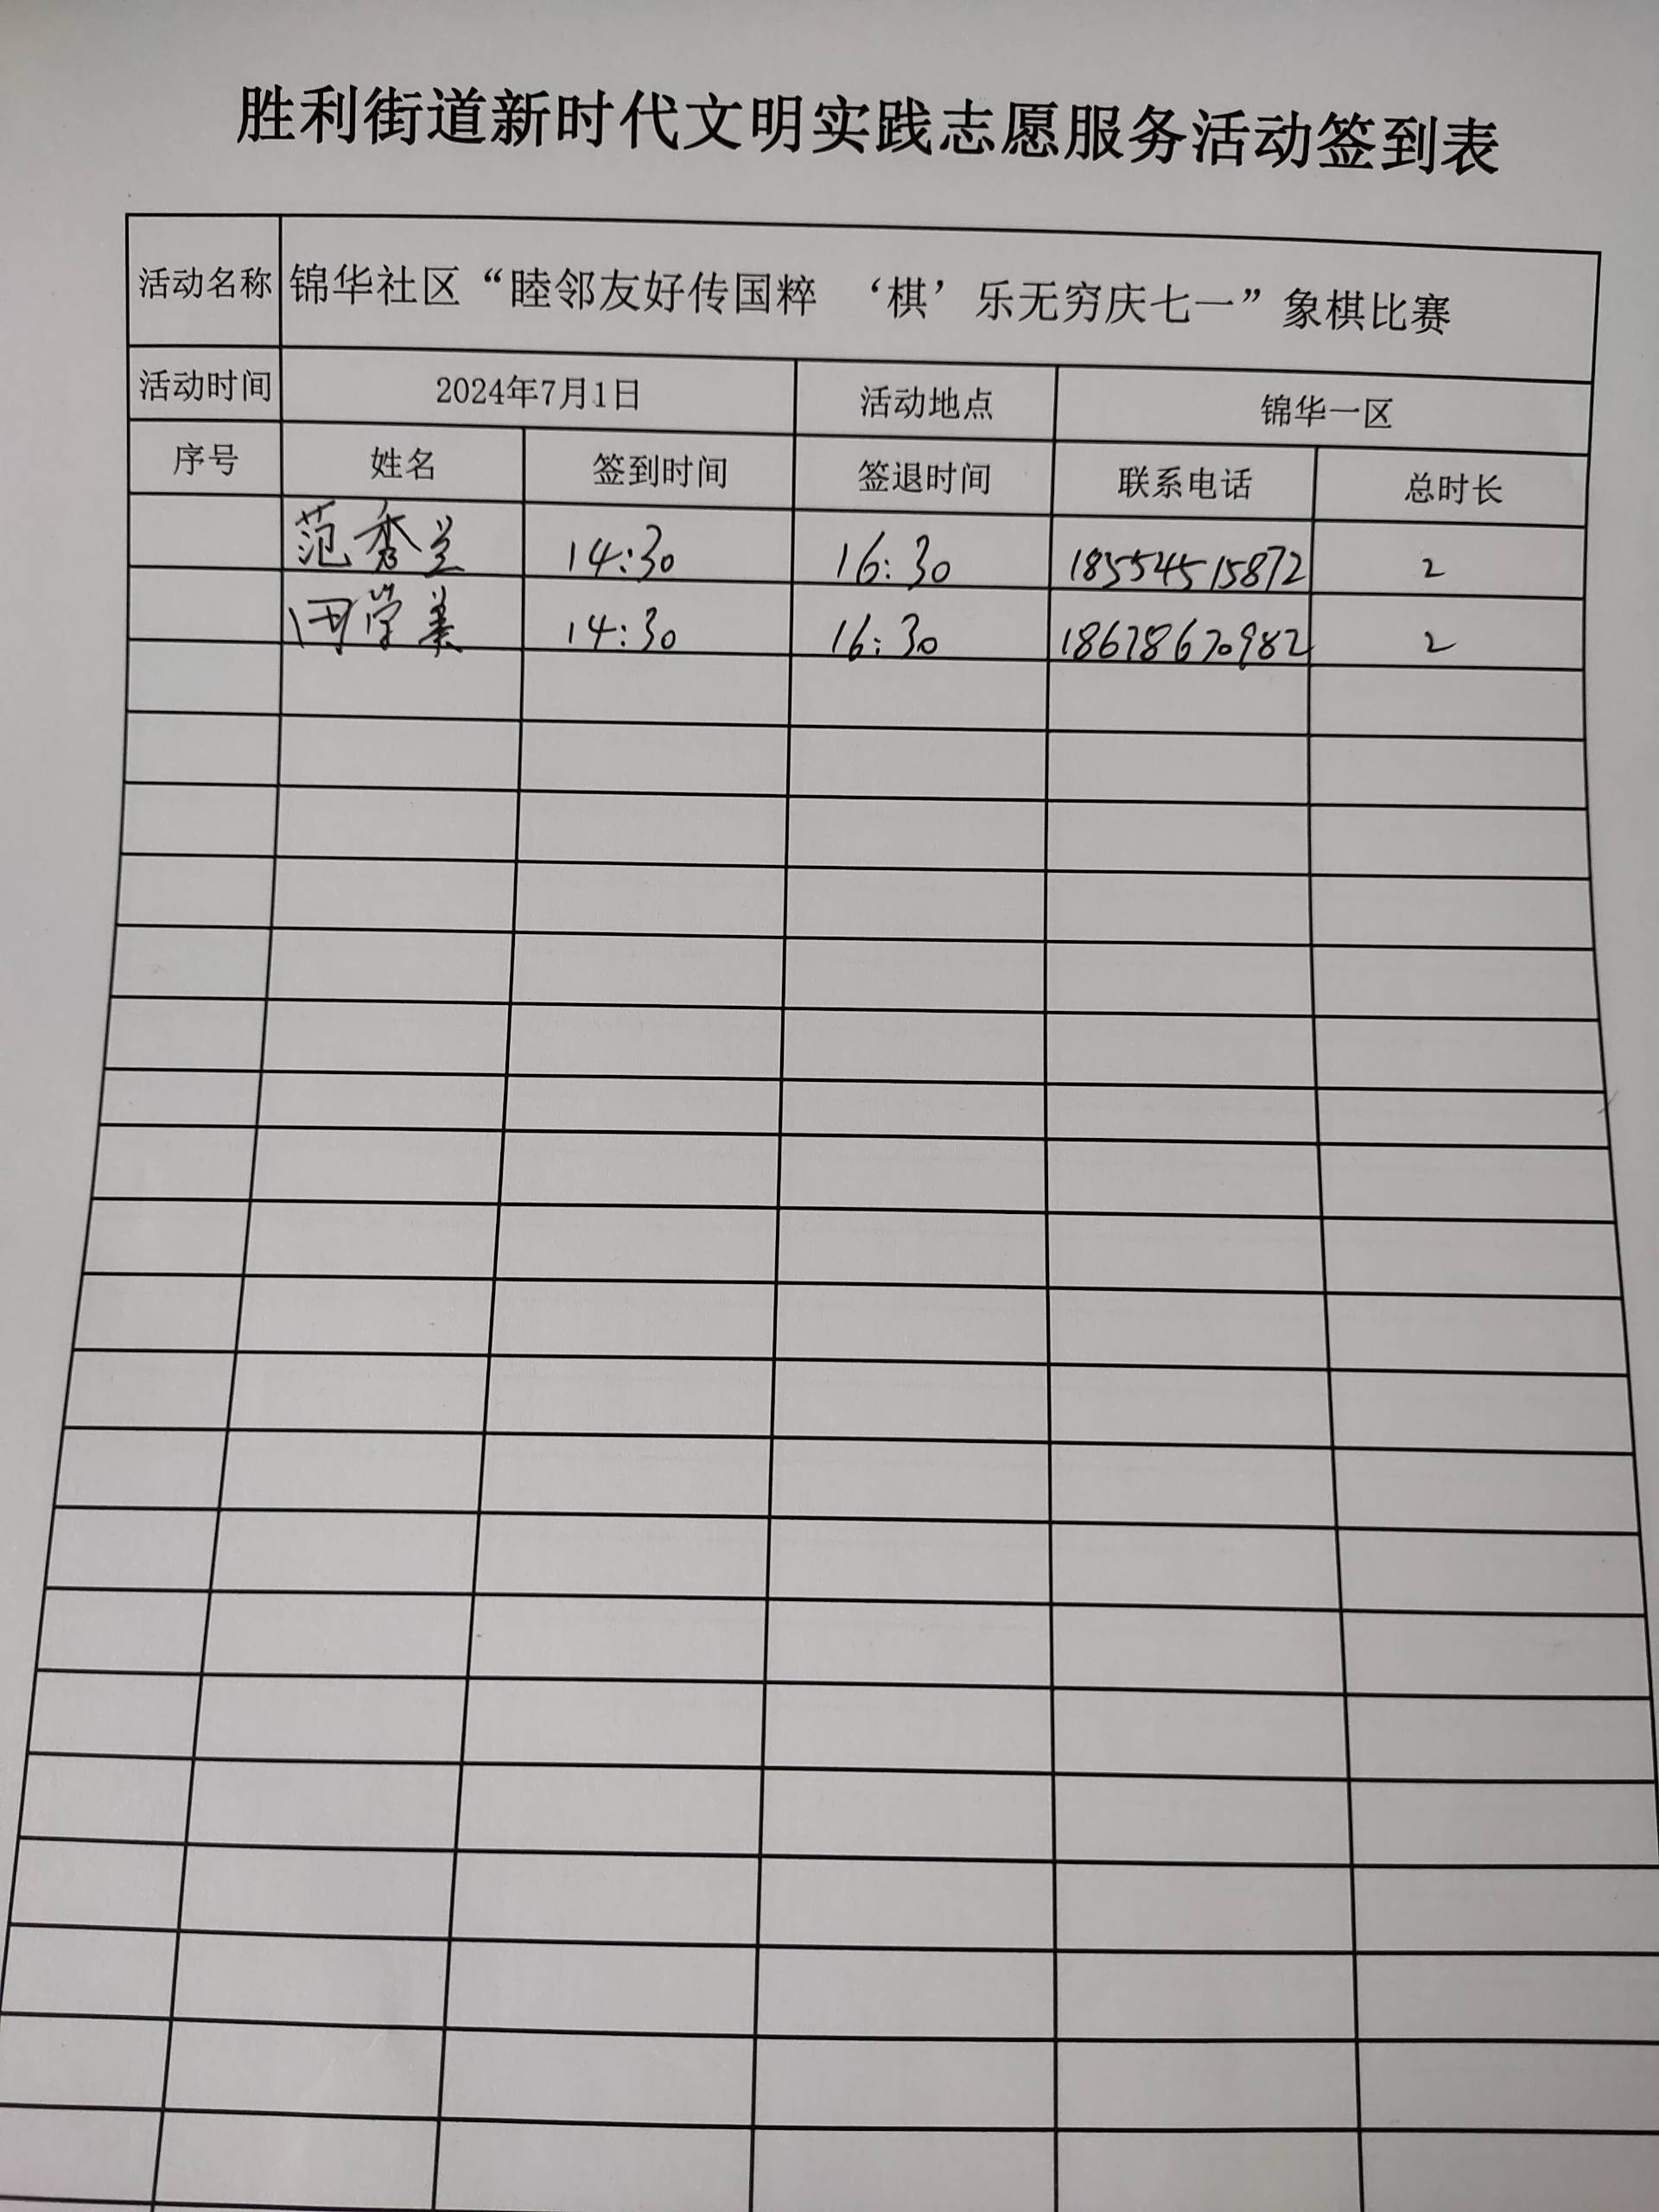 胜利街道新时代文明实践志愿服务活动签到表
活动名称 锦华社区“睦邻友好传国粹 ‘棋’乐无穷庆七一”象棋比赛
活动时间 2024年7月1日 活动地点 锦华一区
序号 姓名 签到时间 签退时间 联系电话 总时长
范秀兰 14:30 16:30 18554515872 2
田学美 14:30 16:30 18678670982 2